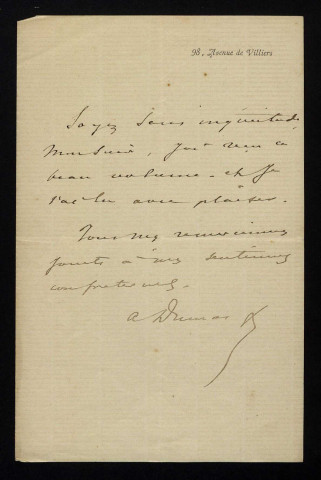 98, Avenue de Villiers
Soyez sans inquiétude,
Monsieur, j'ai reçu ce
beau volume. et je
l'ai lu avec plaisir.
Tous mes remerciements
joints à mes sentiments
confraternels.
A Dumas f